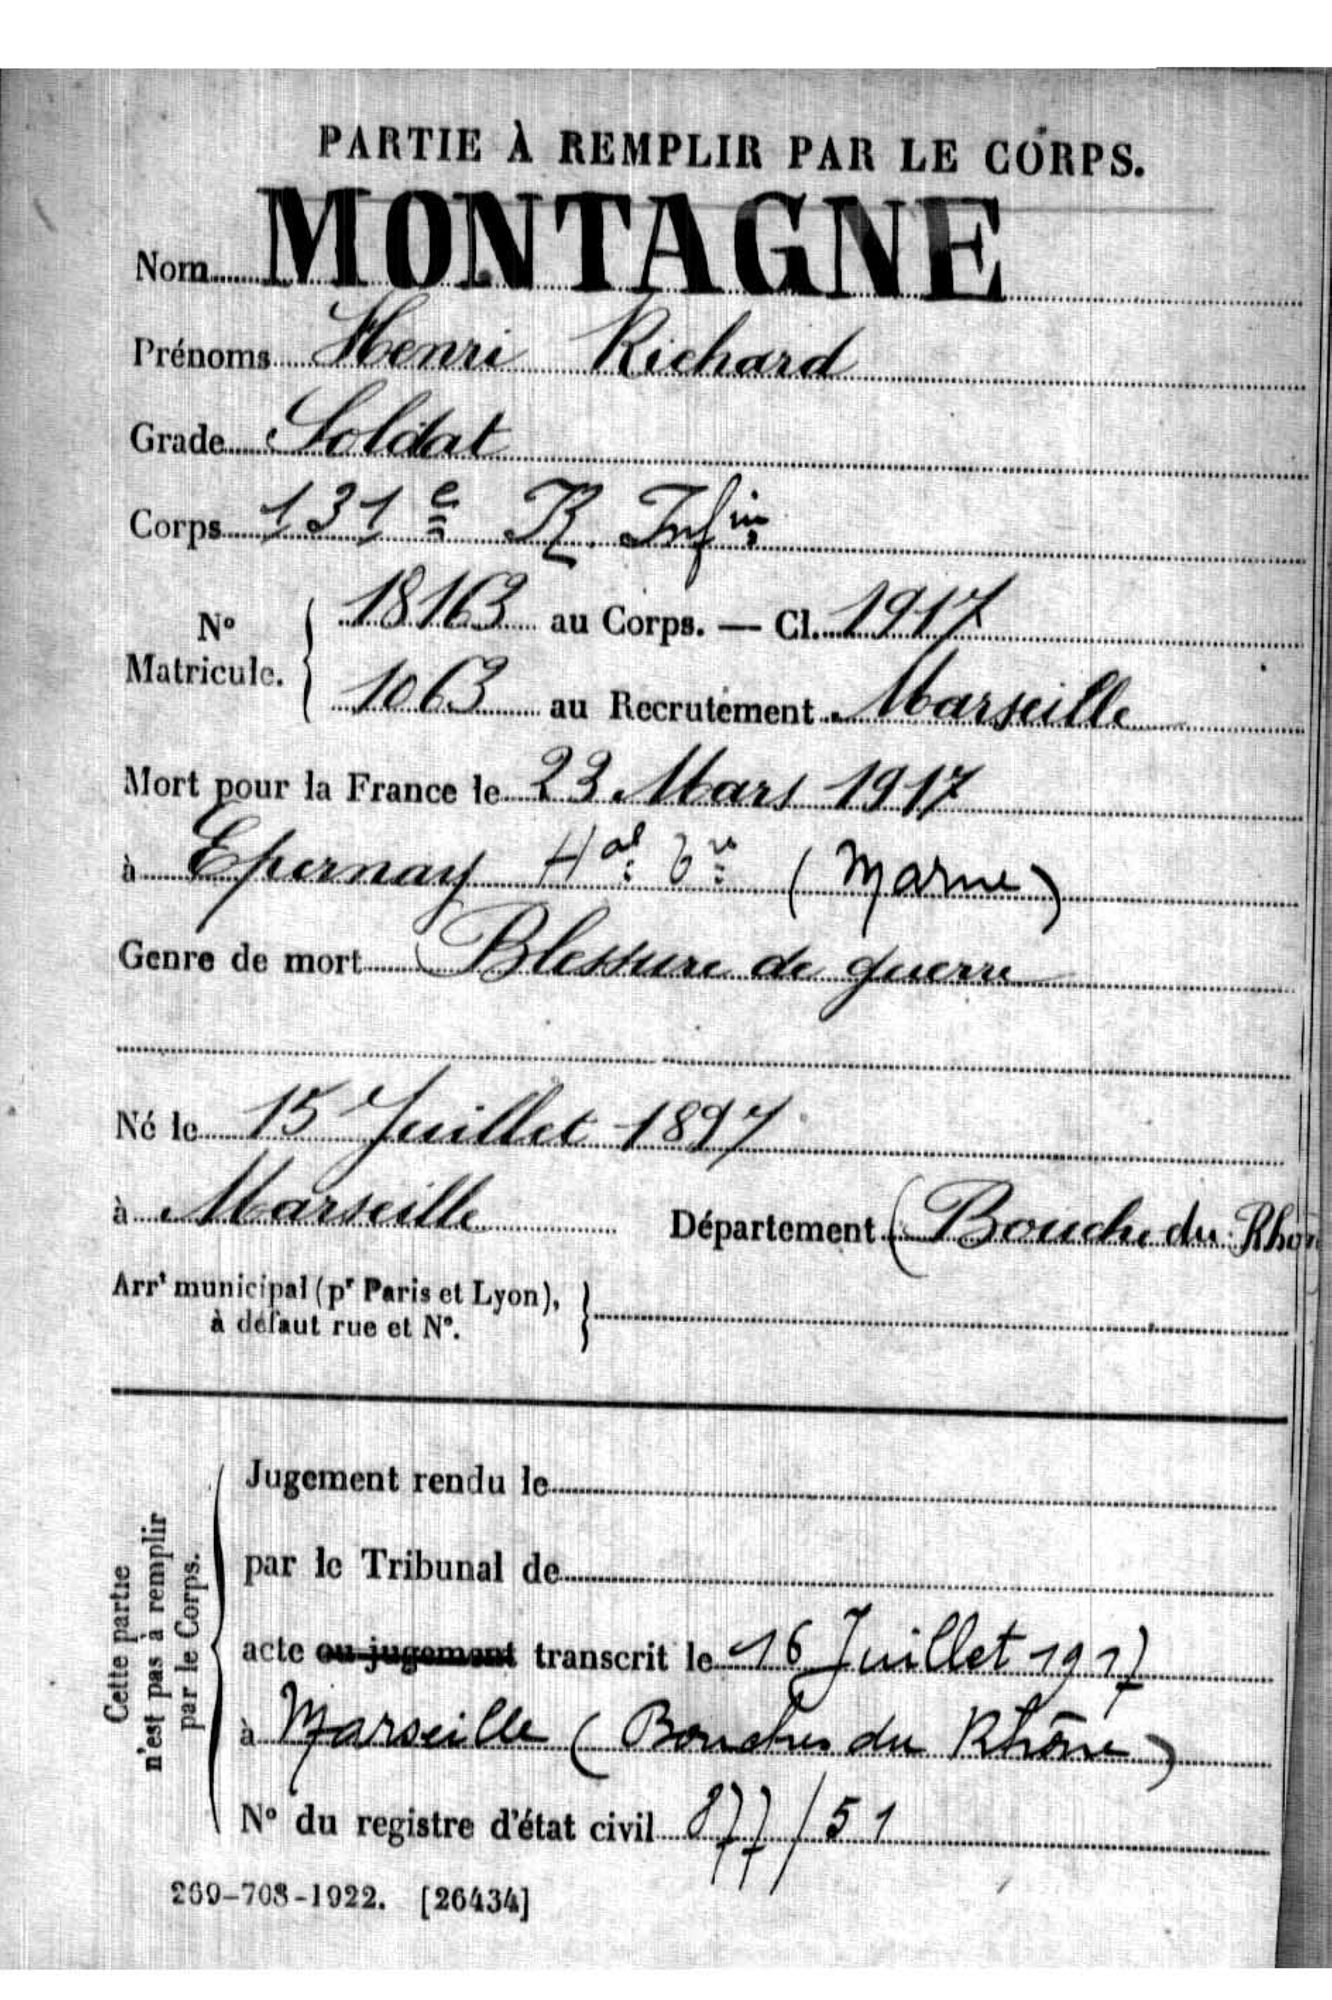 PARTIE À REMPLIR PAR LE CORPS.
Nom MONTAGNE
Prénoms Henri Richard
Grade Soldat
Corps 131e R. Infie
N° Matricule. { 18163 au Corps. — Cl. 1917
1063 au Recrutement Marseille
Mort pour la France le 23 Mars 1917
à Epernay Hal (Marne)
Genre de mort Blessure de guerre
Né le 15 Juillet 1897
à Marseille Département (Bouche du Rhon
Arrt municipal (pr Paris et Lyon), }
à défaut rue et N°.
Cette partie
n'est pas à remplir
par le Corps.
Jugement rendu le
par le Tribunal de
acte ou jugement transcrit le 16 Juillet 1917
à Marseille (Bouches du Rhône)
N° du registre d'état civil 877/51
269-708-1922. [26434]